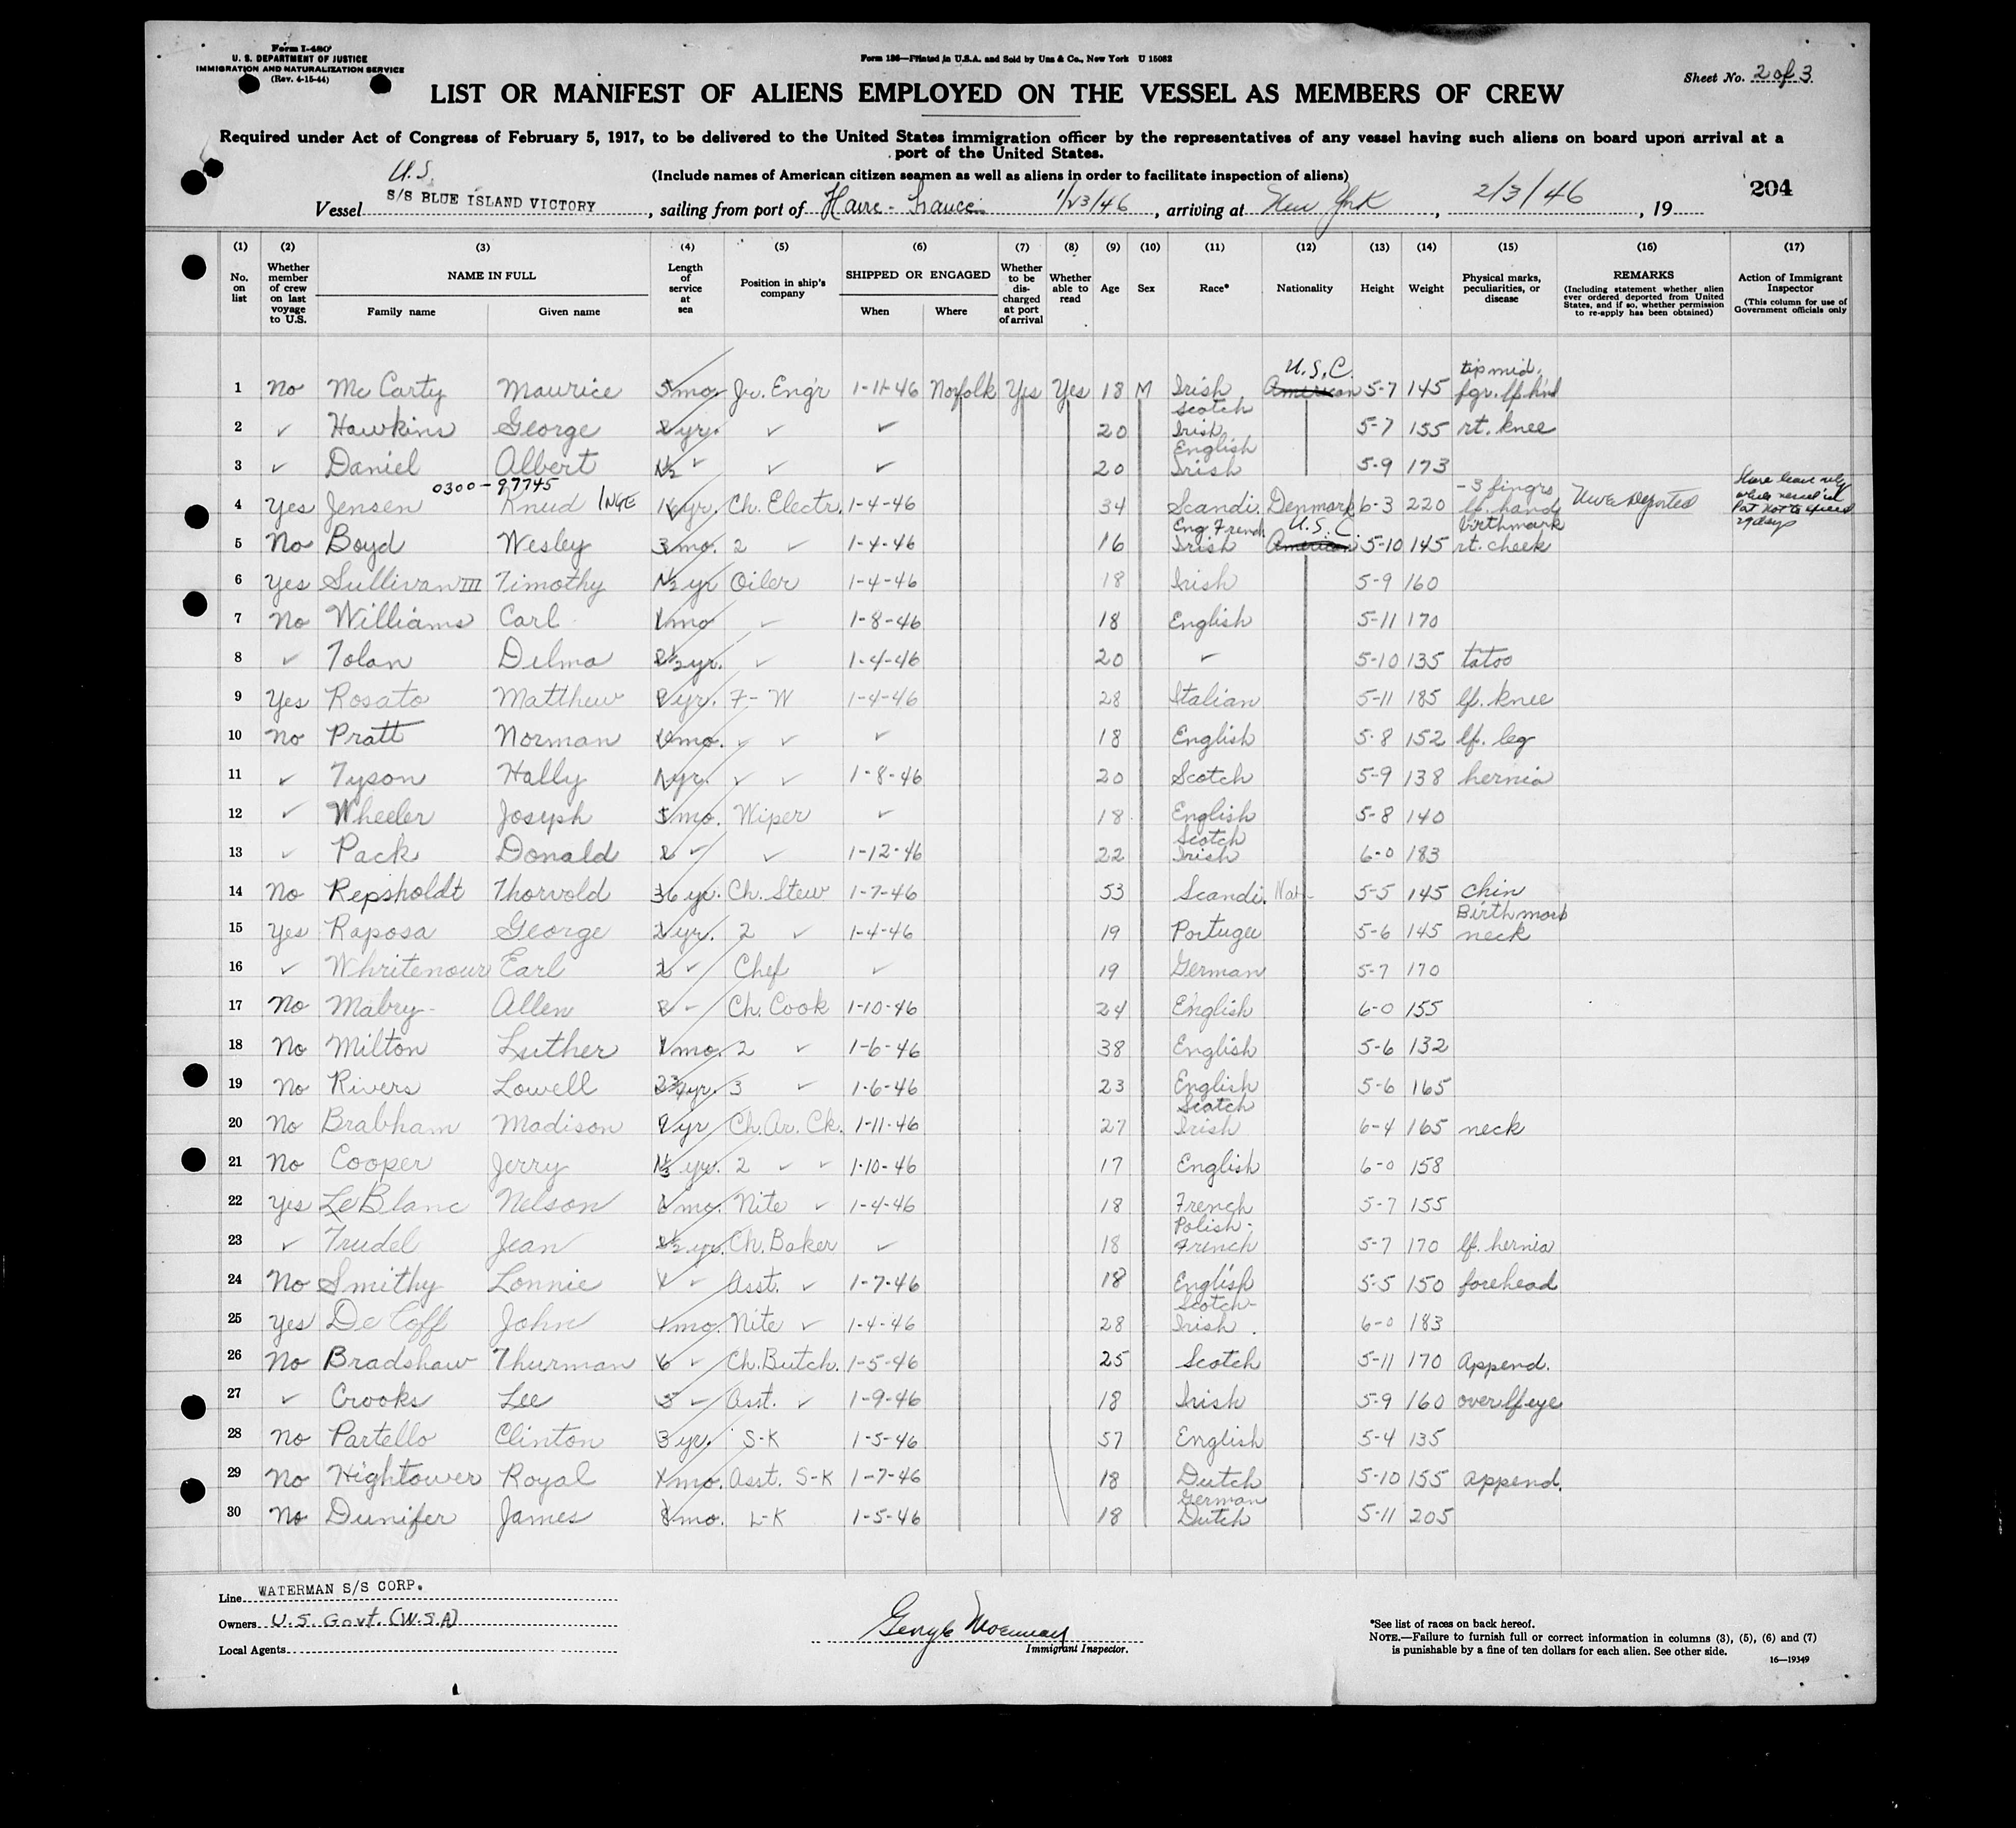 Form I-480
U. S. DEPARTMENT OF JUSTICE
IMMIGRATION AND NATURALIZATION SERVICE
(Rev. 4-15-44)
Form 136—Printed in U.S.A. and Sold by Unz & Co., New York U 15082
Sheet No. 2 of 3
LIST OR MANIFEST OF ALIENS EMPLOYED ON THE VESSEL AS MEMBERS OF CREW
Required under Act of Congress of February 5, 1917, to be delivered to the United States immigration officer by the representatives of any vessel having such aliens on board upon arrival at a
port of the United States.
(Include names of American citizen seamen as well as aliens in order to facilitate inspection of aliens)
204
U.S.
Vessel S/S BLUE ISLAND VICTORY, sailing from port of Havre - France 1/23/46, arriving at New York, 2/3/46, 19
(1) (2) (3) (4) (5) (6) (7) (8) (9) (10) (11) (12) (13) (14) (15) (16) (17)
No. on list
Whether member of crew on last voyage to U.S.
NAME IN FULL
Family name Given name
Length of service at sea
Position in ship's company
SHIPPED OR ENGAGED
When Where
Whether to be discharged at port of arrival
Whether able to read
Age
Sex
Race*
Nationality
Height
Weight
Physical marks, peculiarities, or disease
REMARKS
(Including statement whether alien ever ordered deported from United States, and if so, whether permission to re-apply has been obtained)
Action of Immigrant Inspector
(This column for use of Government officials only)
1 No Mc Carty Maurice 5 mo. Jr. Engr 1-11-46 Norfolk Yes Yes 18 M Irish American U.S.C. 5-7 145 tip mid. fgr. lf. hnd
2 ✓ Hawkins George 2 yr. ✓ ✓ 20 Scotch Irish 5-7 155 rt. knee
3 ✓ Daniel Albert 1½ ✓ ✓ ✓ 20 English Irish 5-9 173
0300-97745
4 Yes Jensen Knud INGE yr. Ch. Electr. 1-4-46 34 Scandi. Denmark 6-3 220 -3 fingrs lf. hand Never Deported
5 No Boyd Wesley 3 mo. 2 ✓ 1-4-46 16 Eng French Irish American U.S.C 5-10 145 birthmark rt. cheek
6 Yes Sullivan III Timothy 1½ yr Oiler 1-4-46 18 Irish 5-9 160
7 No Williams Carl 1 mo ✓ 1-8-46 18 English 5-11 170
8 ✓ Tolan Delma 2½ yr. ✓ 1-4-46 20 ✓ 5-10 135 tatoo
9 Yes Rosato Matthew yr. F-W 1-4-46 28 Italian 5-11 185 lf. knee
10 No Pratt Norman mo. ✓ ✓ ✓ 18 English 5-8 152 lf. leg
11 ✓ Tyson Hally 1 yr. ✓ ✓ 1-8-46 20 Scotch 5-9 138 hernia
12 ✓ Wheeler Josyph 5 mo. Wiper ✓ 18 English 5-8 140
13 ✓ Pack Donald 2 ✓ ✓ 1-12-46 22 Scotch Irish 6-0 183
14 No Repsholdt Thorvold 36 yr. Ch. Stew 1-7-46 53 Scandi. Nat- 5-5 145 chin
15 Yes Raposa George 2 yr. 2 ✓ 1-4-46 19 Portugee 5-6 145 Birthmark neck
16 ✓ Whritenour Earl 2 ✓ Chef ✓ 19 German 5-7 170
17 No Mabry Allen 2 - Ch. Cook 1-10-46 24 English 6-0 155
18 No Milton Luther 1 mo. 2 ✓ 1-6-46 38 English 5-6 132
19 No Rivers Lowell 2¾ yr. 3 ✓ 1-6-46 23 English 5-6 165
20 No Brabham Madison 9 yr Ch. Ar. Ck. 1-11-46 27 Scotch Irish 6-4 165 neck
21 No Cooper Jerry 1⅓ yr. 2 ✓ ✓ 1-10-46 17 English 6-0 158
22 Yes LeBlanc Nelson mo. Nite ✓ 1-4-46 18 French 5-7 155
23 ✓ Trudel Jean yr. Ch. Baker ✓ 18 Polish- French 5-7 170 lf. hernia
24 No Smithy Lonnie 1 ✓ Asst. ✓ 1-7-46 18 English 5-5 150 forehead
25 Yes De Coff John mo. Nite ✓ 1-4-46 28 Scotch- Irish 6-0 183
26 No Bradshaw Thurman 6 ✓ Ch. Butch. 1-5-46 25 Scotch 5-11 170 Append.
27 ✓ Crooks Lee 3 - Asst. ✓ 1-9-46 18 Irish 5-9 160 over lf eye
28 No Partello Clinton 3 yr. S-K 1-5-46 57 English 5-4 135
29 No Hightower Royal mo. Asst. S-K 1-7-46 18 Dutch 5-10 155 append.
30 No Dunifer James 8 mo. L-K 1-5-46 18 German Dutch 5-11 205
Line WATERMAN S/S CORP.
Owners U.S. Govt. (W.S.A)
Local Agents
Immigrant Inspector.
*See list of races on back hereof.
NOTE.—Failure to furnish full or correct information in columns (3), (5), (6) and (7)
is punishable by a fine of ten dollars for each alien. See other side.
16—19349